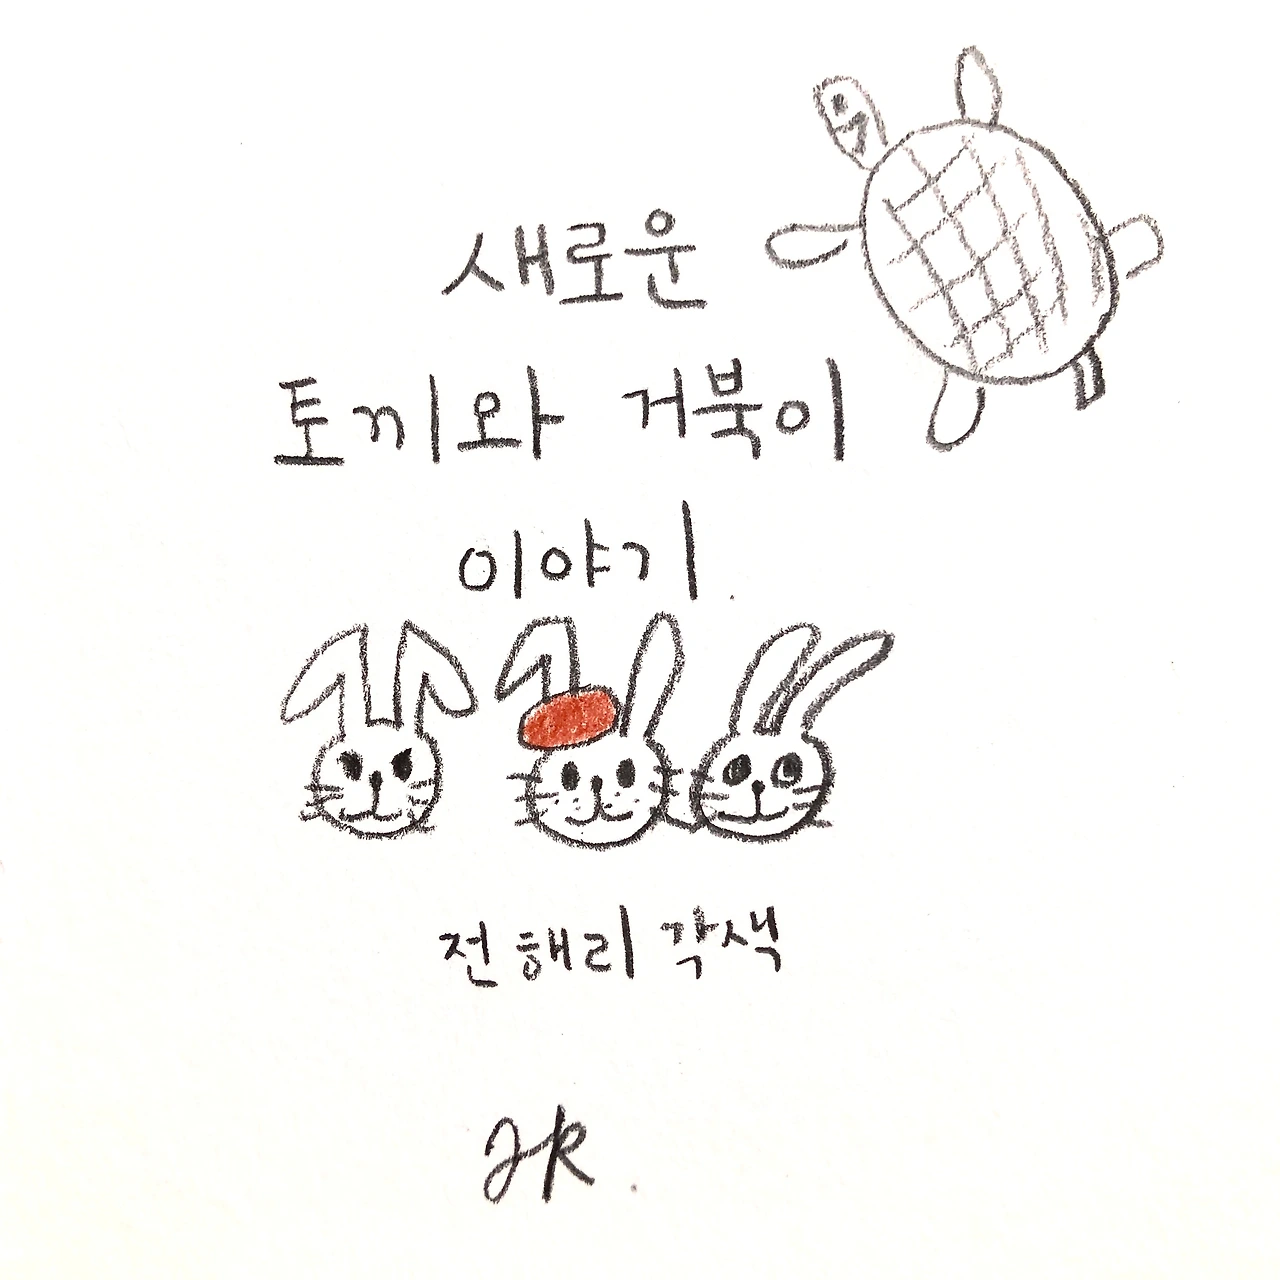 새로운
토끼와 거북이
이야기
전해리 각색